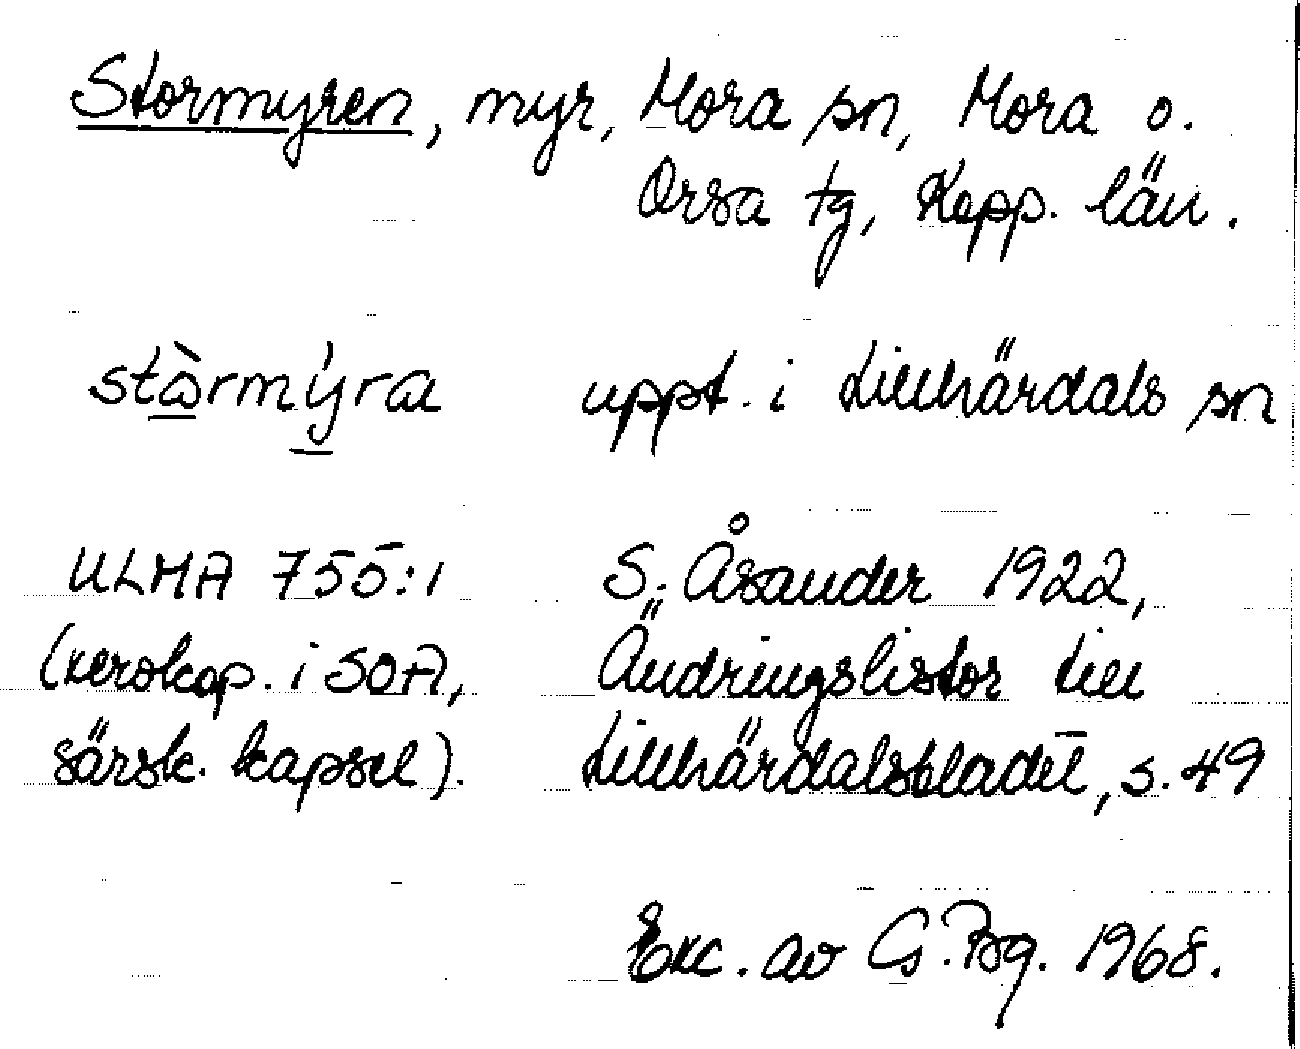 Stormyren, myr, Mora sn, Mora o.
Orsa tg, Kopp. län.
stò̱rmý̱ra uppt. i Lillhärdals sn
ULMA 755:1 S. Åsander 1922,
(xerokop. i SOA, Ändringslistor till
särsk. kapsel). Lillhärdalsbladet, s. 49
Exc. av G. Bg. 1968.